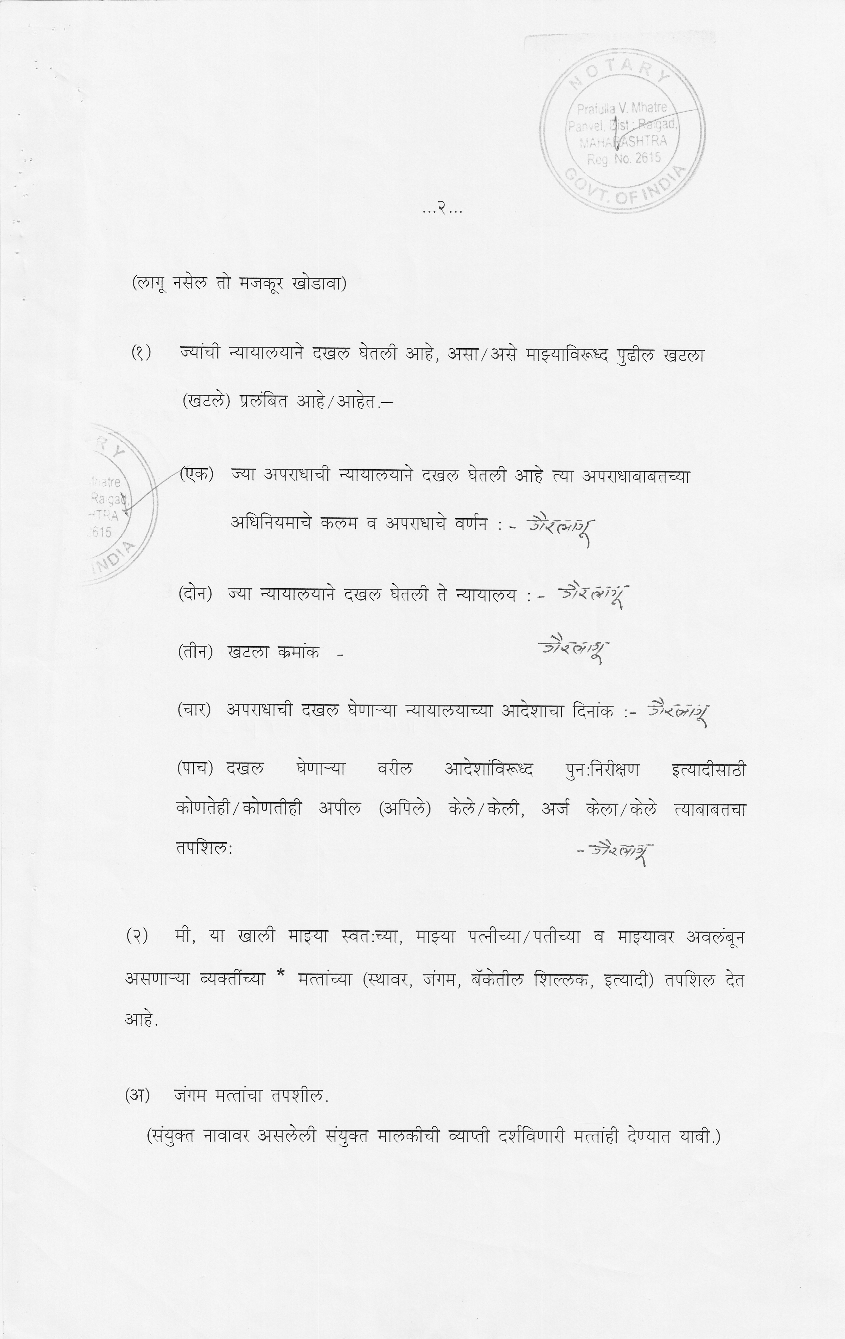 NOTARY
Prafulla V. Mhatre
Panvel, Dist: Raigad,
MAHARASHTRA
Reg No. 2615
GOVT. OF INDIA
...२...
(लागू नसेल तो मजकूर खोडावा)
(१) ज्यांची न्यायालयाने दखल घेतली आहे, असा/असे माझ्याविरूध्द पुढील खटला
(खटले) प्रलंबित आहे/आहेत.–
(एक) ज्या अपराधाची न्यायालयाने दखल घेतली आहे त्या अपराधाबाबतच्या
अधिनियमाचे कलम व अपराधाचे वर्णन : - गैरलागू
(दोन) ज्या न्यायालयाने दखल घेतली ते न्यायालय : - गैरलागू
(तीन) खटला क्रमांक - गैरलागू
(चार) अपराधाची दखल घेणाऱ्या न्यायालयाच्या आदेशाचा दिनांक :- गैरलागू
(पाच) दखल घेणाऱ्या वरील आदेशांविरूध्द पुन:निरीक्षण इत्यादीसाठी
कोणतेही/कोणतीही अपील (अपिले) केले/केली, अर्ज केला/केले त्याबाबतचा
तपशिल: - गैरलागू
NOTARY
hatre
Raigad,
HTRA
2615
INDIA
(२) मी, या खाली माझ्या स्वत:च्या, माझ्या पत्नीच्या/पतीच्या व माझ्यावर अवलंबून
असणाऱ्या व्यक्तींच्या * मत्तांच्या (स्थावर, जंगम, बॅकेतील शिल्लक, इत्यादी) तपशिल देत
आहे.
(अ) जंगम मत्तांचा तपशील.
(संयुक्त नावावर असलेली संयुक्त मालकीची व्याप्ती दर्शविणारी मत्तांही देण्यात यावी.)